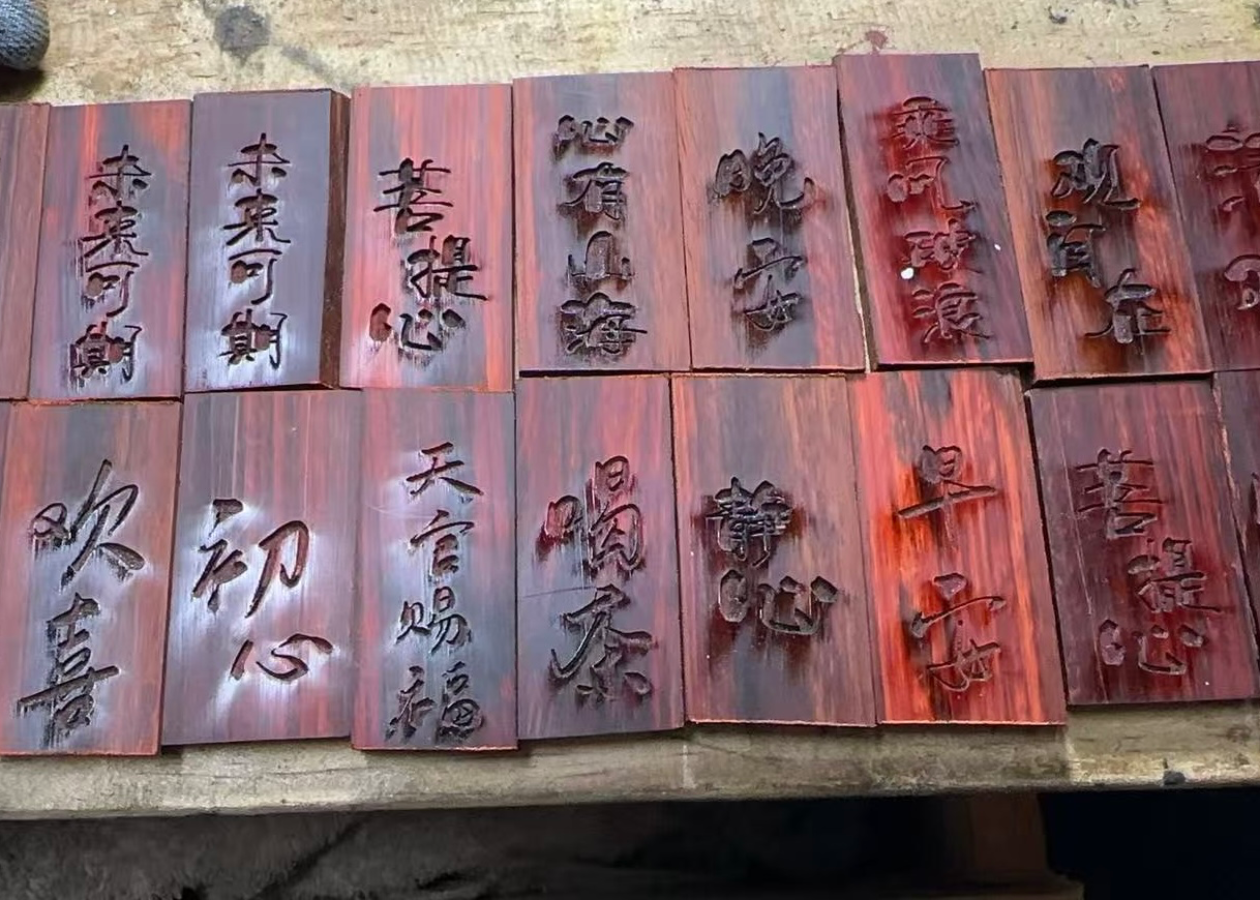 未来可期
未来可期
菩提心
沁有山海
晚安
乘风破浪
观自在
欢喜
初心
天官赐福
喝茶
静心
早安
菩提心